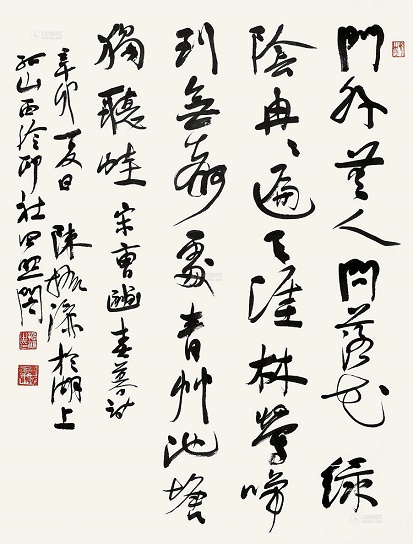 門外無人問落花綠
陰冉冉遍天涯林鶯啼
到無聲處青草池塘
獨聽蛙 宋曹豳春暮詩
辛卯夏日 陳振濂於湖上
孤山西泠印社四照閣